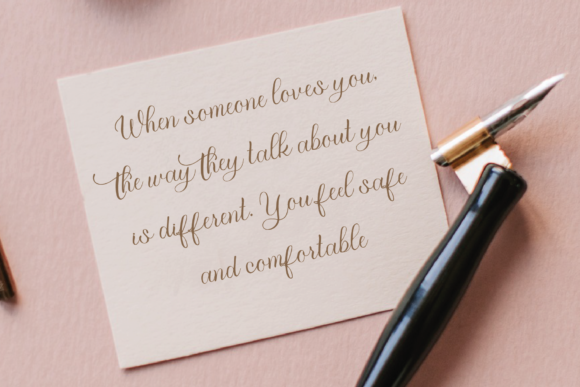 When someone loves you.
the way they talk about you
is different. You feel safe
and comfortable